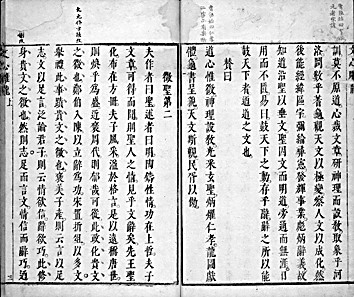 訓莫不原道心裁文章研神理而設教取象乎河
洛問數乎蓍龜觀天文以極變察人文以成化然
後能經緯區宇彌綸彝憲發輝事業彪炳辭義故
知道沿聖以垂文聖因文而明道旁通而無涯日
用而不匱易曰鼓天下之動者存乎辭辭之所以能
鼓天下者迺道之文也
贊曰
道心惟微神理設教光采玄聖炳燿仁孝龍圖獻
體龜書呈貌天文斯觀民胥以傚
徵聖第二
夫作者曰聖述者曰明陶鑄性情功在上哲夫子
文章可得而聞則聖人之情見乎文辭矣先王聖
化布在方冊夫子風采溢於格言是以遠稱唐世
則煥乎爲盛近褒周代則郁哉可從此政化貴文
之徵也鄭伯入陳以立辭爲功宋置折俎以多文
舉禮此事蹟貴文之徵也褒美子產則云言以足
志文以足言泛論君子則云情欲信辭欲巧此修
身貴文之徵也然則志足而言文情信而辭巧迺
文心雕龍 上